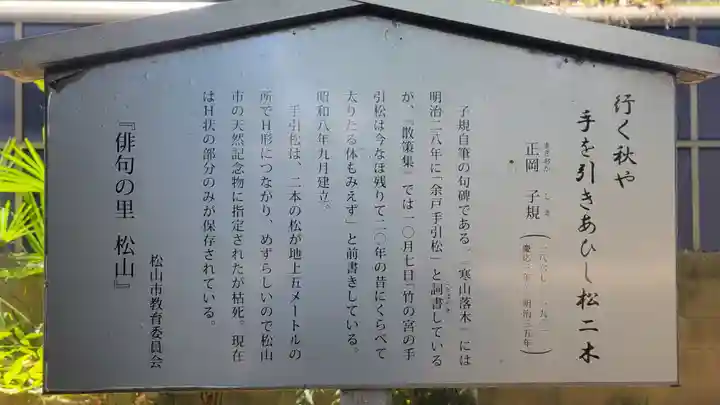 行く秋や
手を引きあひし松二木
正岡 子規
まさおか しき
(一八六七 一九〇二
慶応三年 明治三五年)
子規自筆の句碑である。『寒山落木』には
明治二八年に「余戸手引松」と詞書している
ことばがき
が、『散策集』では一〇月七日「竹の宮の手
引松は今なほ残りて二〇年の昔にくらべて
太りたる体もみえず」と前書きしている。
昭和八年九月建立。
手引松は、二本の松が地上五メートルの
所でH形につながり、めずらしいので松山
市の天然記念物に指定されたが枯死。現在
はH状の部分のみが保存されている。
松山市教育委員会
『俳句の里 松山』